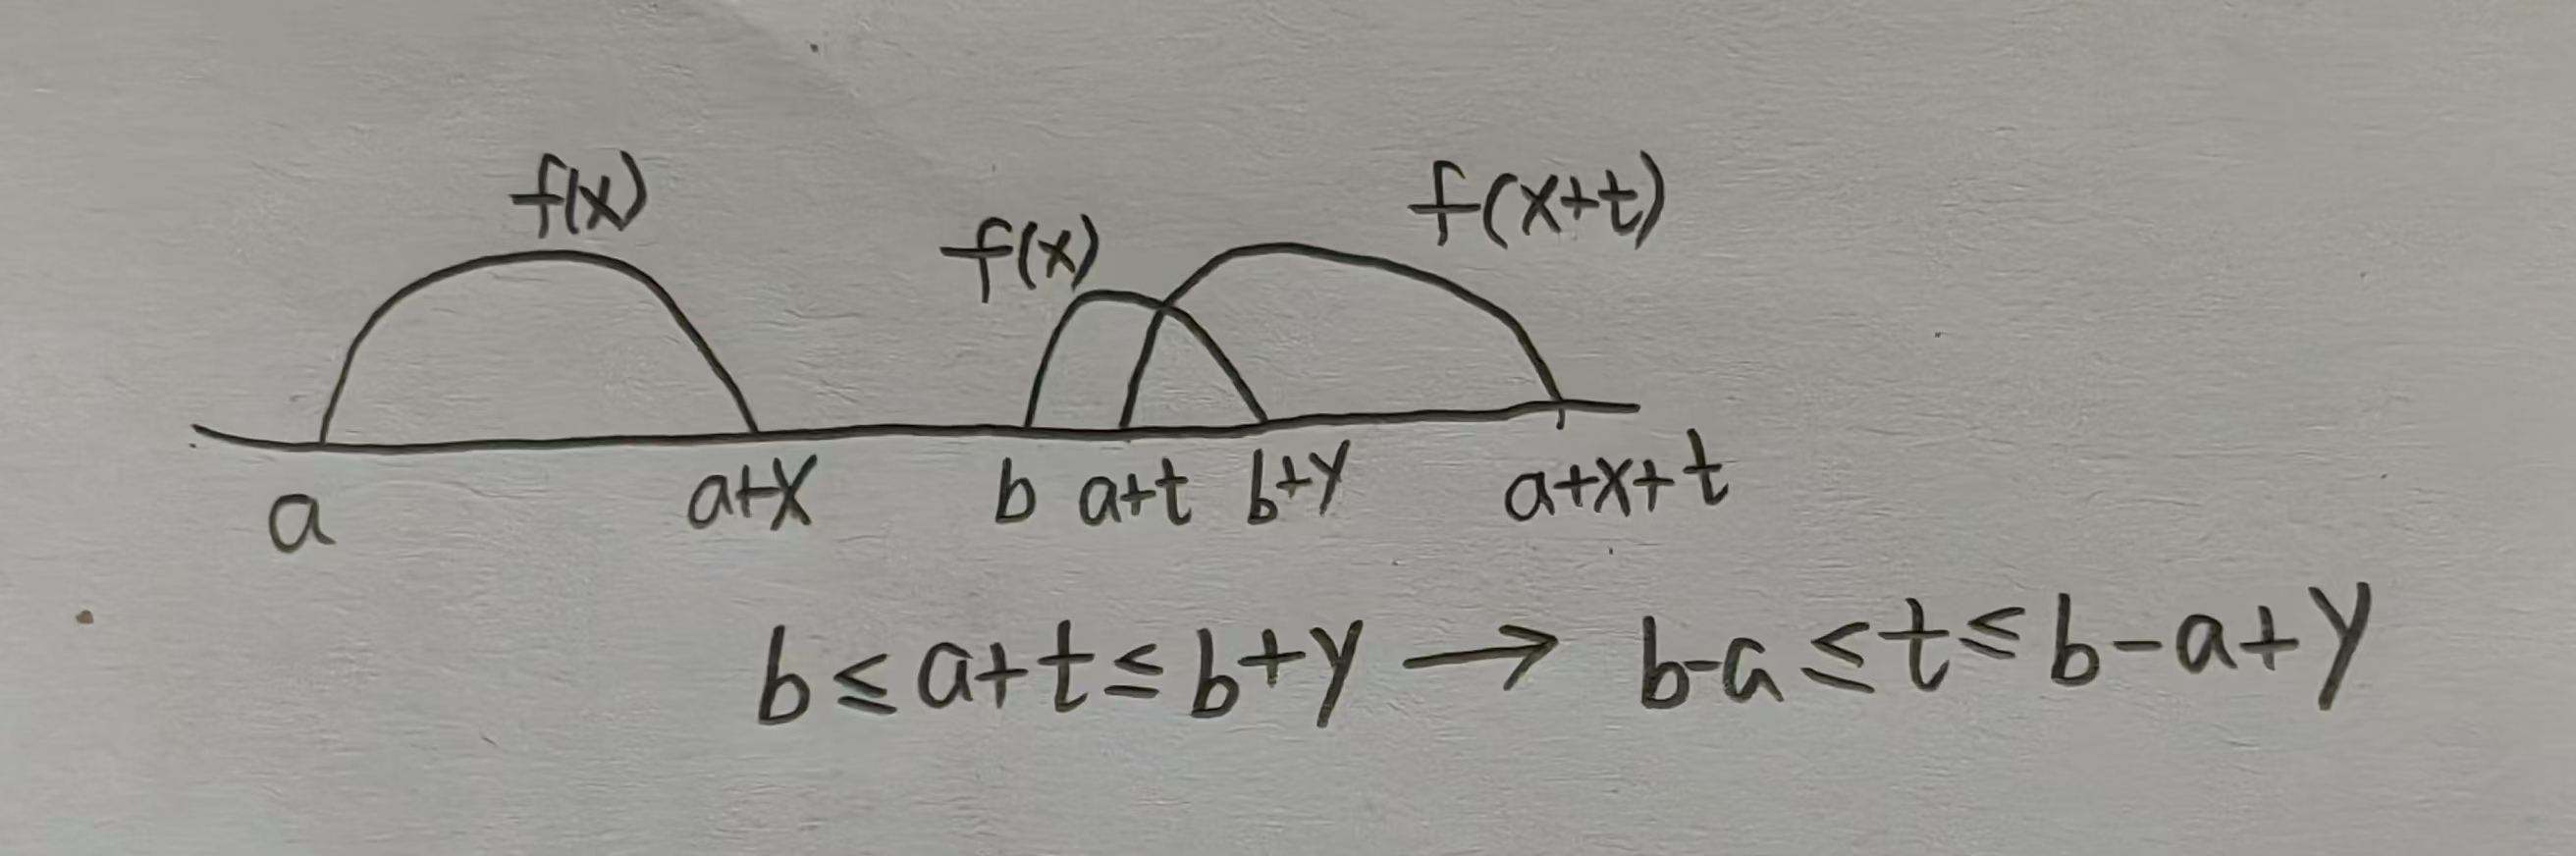 f(x) f(x) f(x+t)
a a+x b a+t b+y a+x+t
b≤a+t≤b+y → b-a≤t≤b-a+y